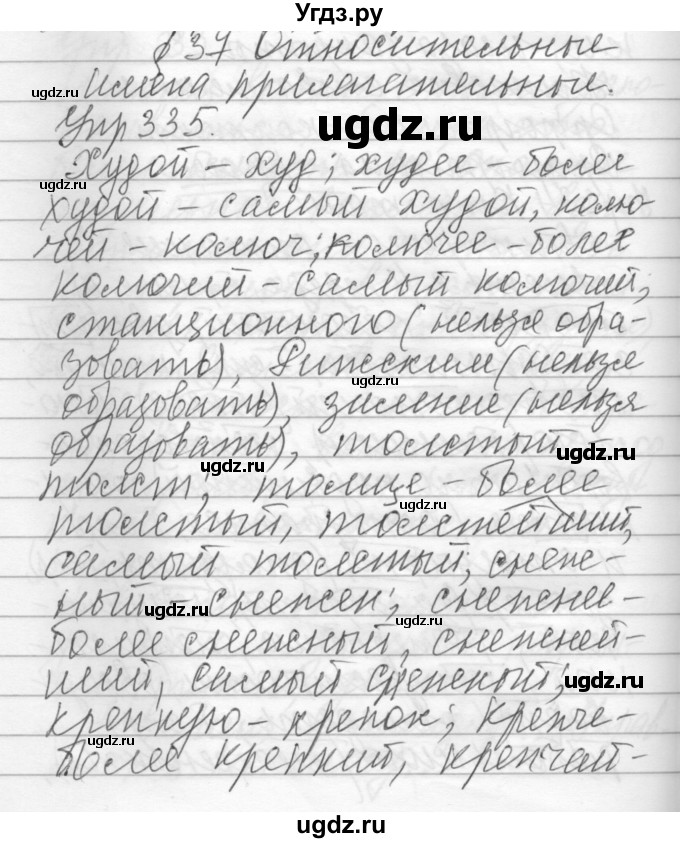 Угдз.ру
§ 37 Относительные
имена прилагательные.
ugdz.ru
Упр 335.
ugdz.ru
Худой – худ; худее – более
ugdz.ru
худой – самый худой, колю-
чей – колюч; колючее – более
колючий – самый колючий;
станционного (нельзя обра-
зовать), Рижским (нельзя
ugdz.ru
образовать), зимние (нельзя
образовать), толстый –
ugdz.ru
ugdz.ru
толст; толще – более
ugdz.ru
толстый, толстейший,
самый толстый; снеж-
ный – снежен; снежнее –
ugdz.ru
ugdz.ru
более снежный, снежней-
ший, самый снежный;
ugdz.ru
крепкую – крепок; крепче –
ugdz.ru
более крепкий, крепчай-
ugdz.ru